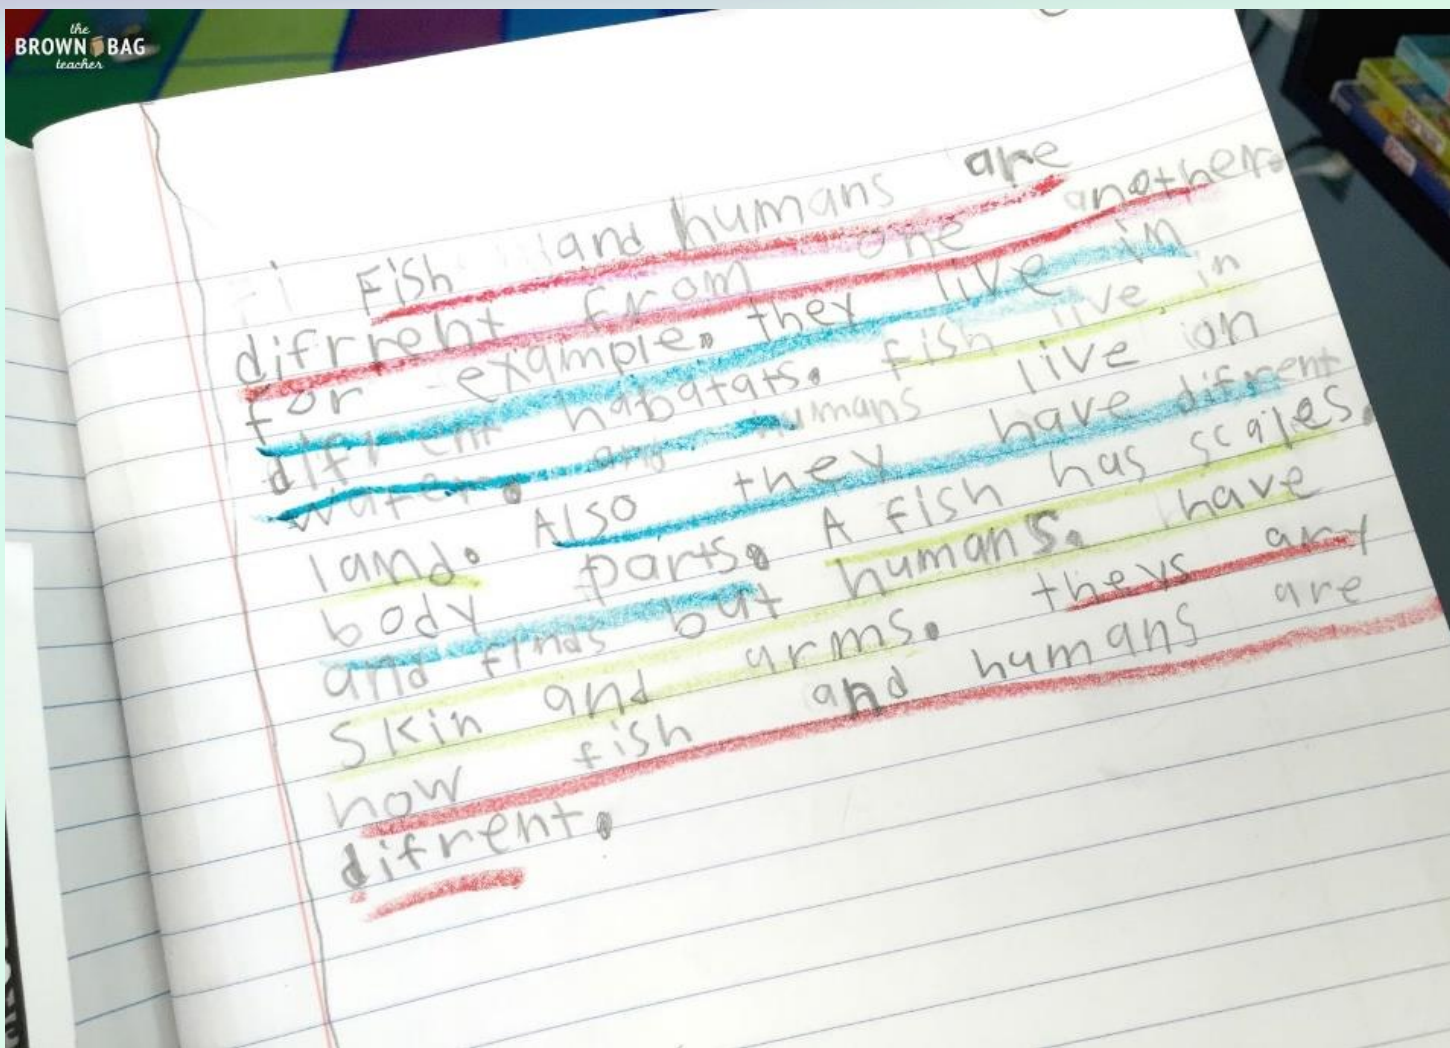 the
BROWN BAG
teacher
Fish and humans are
difrrent from one another.
for example. they live in
difrent habatats. fish live in
water. and humans live on
land. Also they have difrent
body parts. A fish has scales.
and finds but humans. have
skin and arms. theys ary
how fish and humans are
difrent.